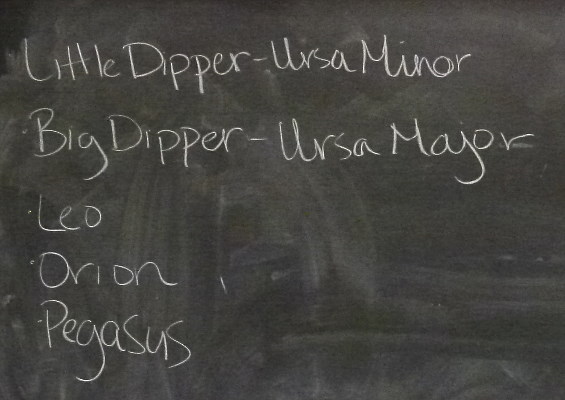 Little Dipper - Ursa Minor
Big Dipper - Ursa Major
Leo
Orion
Pegasus